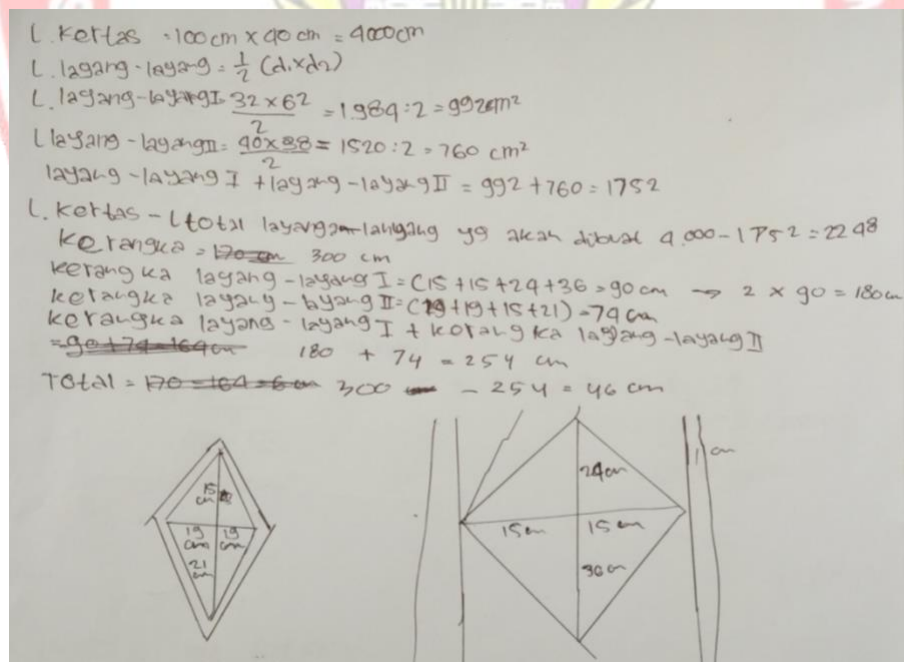 L. Kertas = 100 cm x 40 cm = 4000 cm
L. layang-layang = 1/2 (d1 x d2)
L. layang-layang I = 32 x 62 / 2 = 1.984 : 2 = 992 cm²
L layang-layang II = 40 x 38 / 2 = 1520 : 2 = 760 cm²
layang-layang I + layang-layang II = 992 + 760 = 1752
L. Kertas - L total layangan-layang yg akan dibuat 4.000 - 1752 = 2248
Kerangka = 170 cm 300 cm
kerangka layang-layang I = (15 + 15 + 24 + 36 = 90 cm → 2 x 90 = 180 cm
kerangka layang-layang II = (19 + 19 + 15 + 21) = 74 cm
kerangka layang-layang I + kerangka layang-layang II
= 90 + 74 = 164 cm 180 + 74 = 254 cm
Total = 170 - 164 = 6 cm 300 - 254 = 46 cm
15 cm
19 cm 19 cm
21 cm
24 cm
15 cm 15 cm
36 cm
1 cm